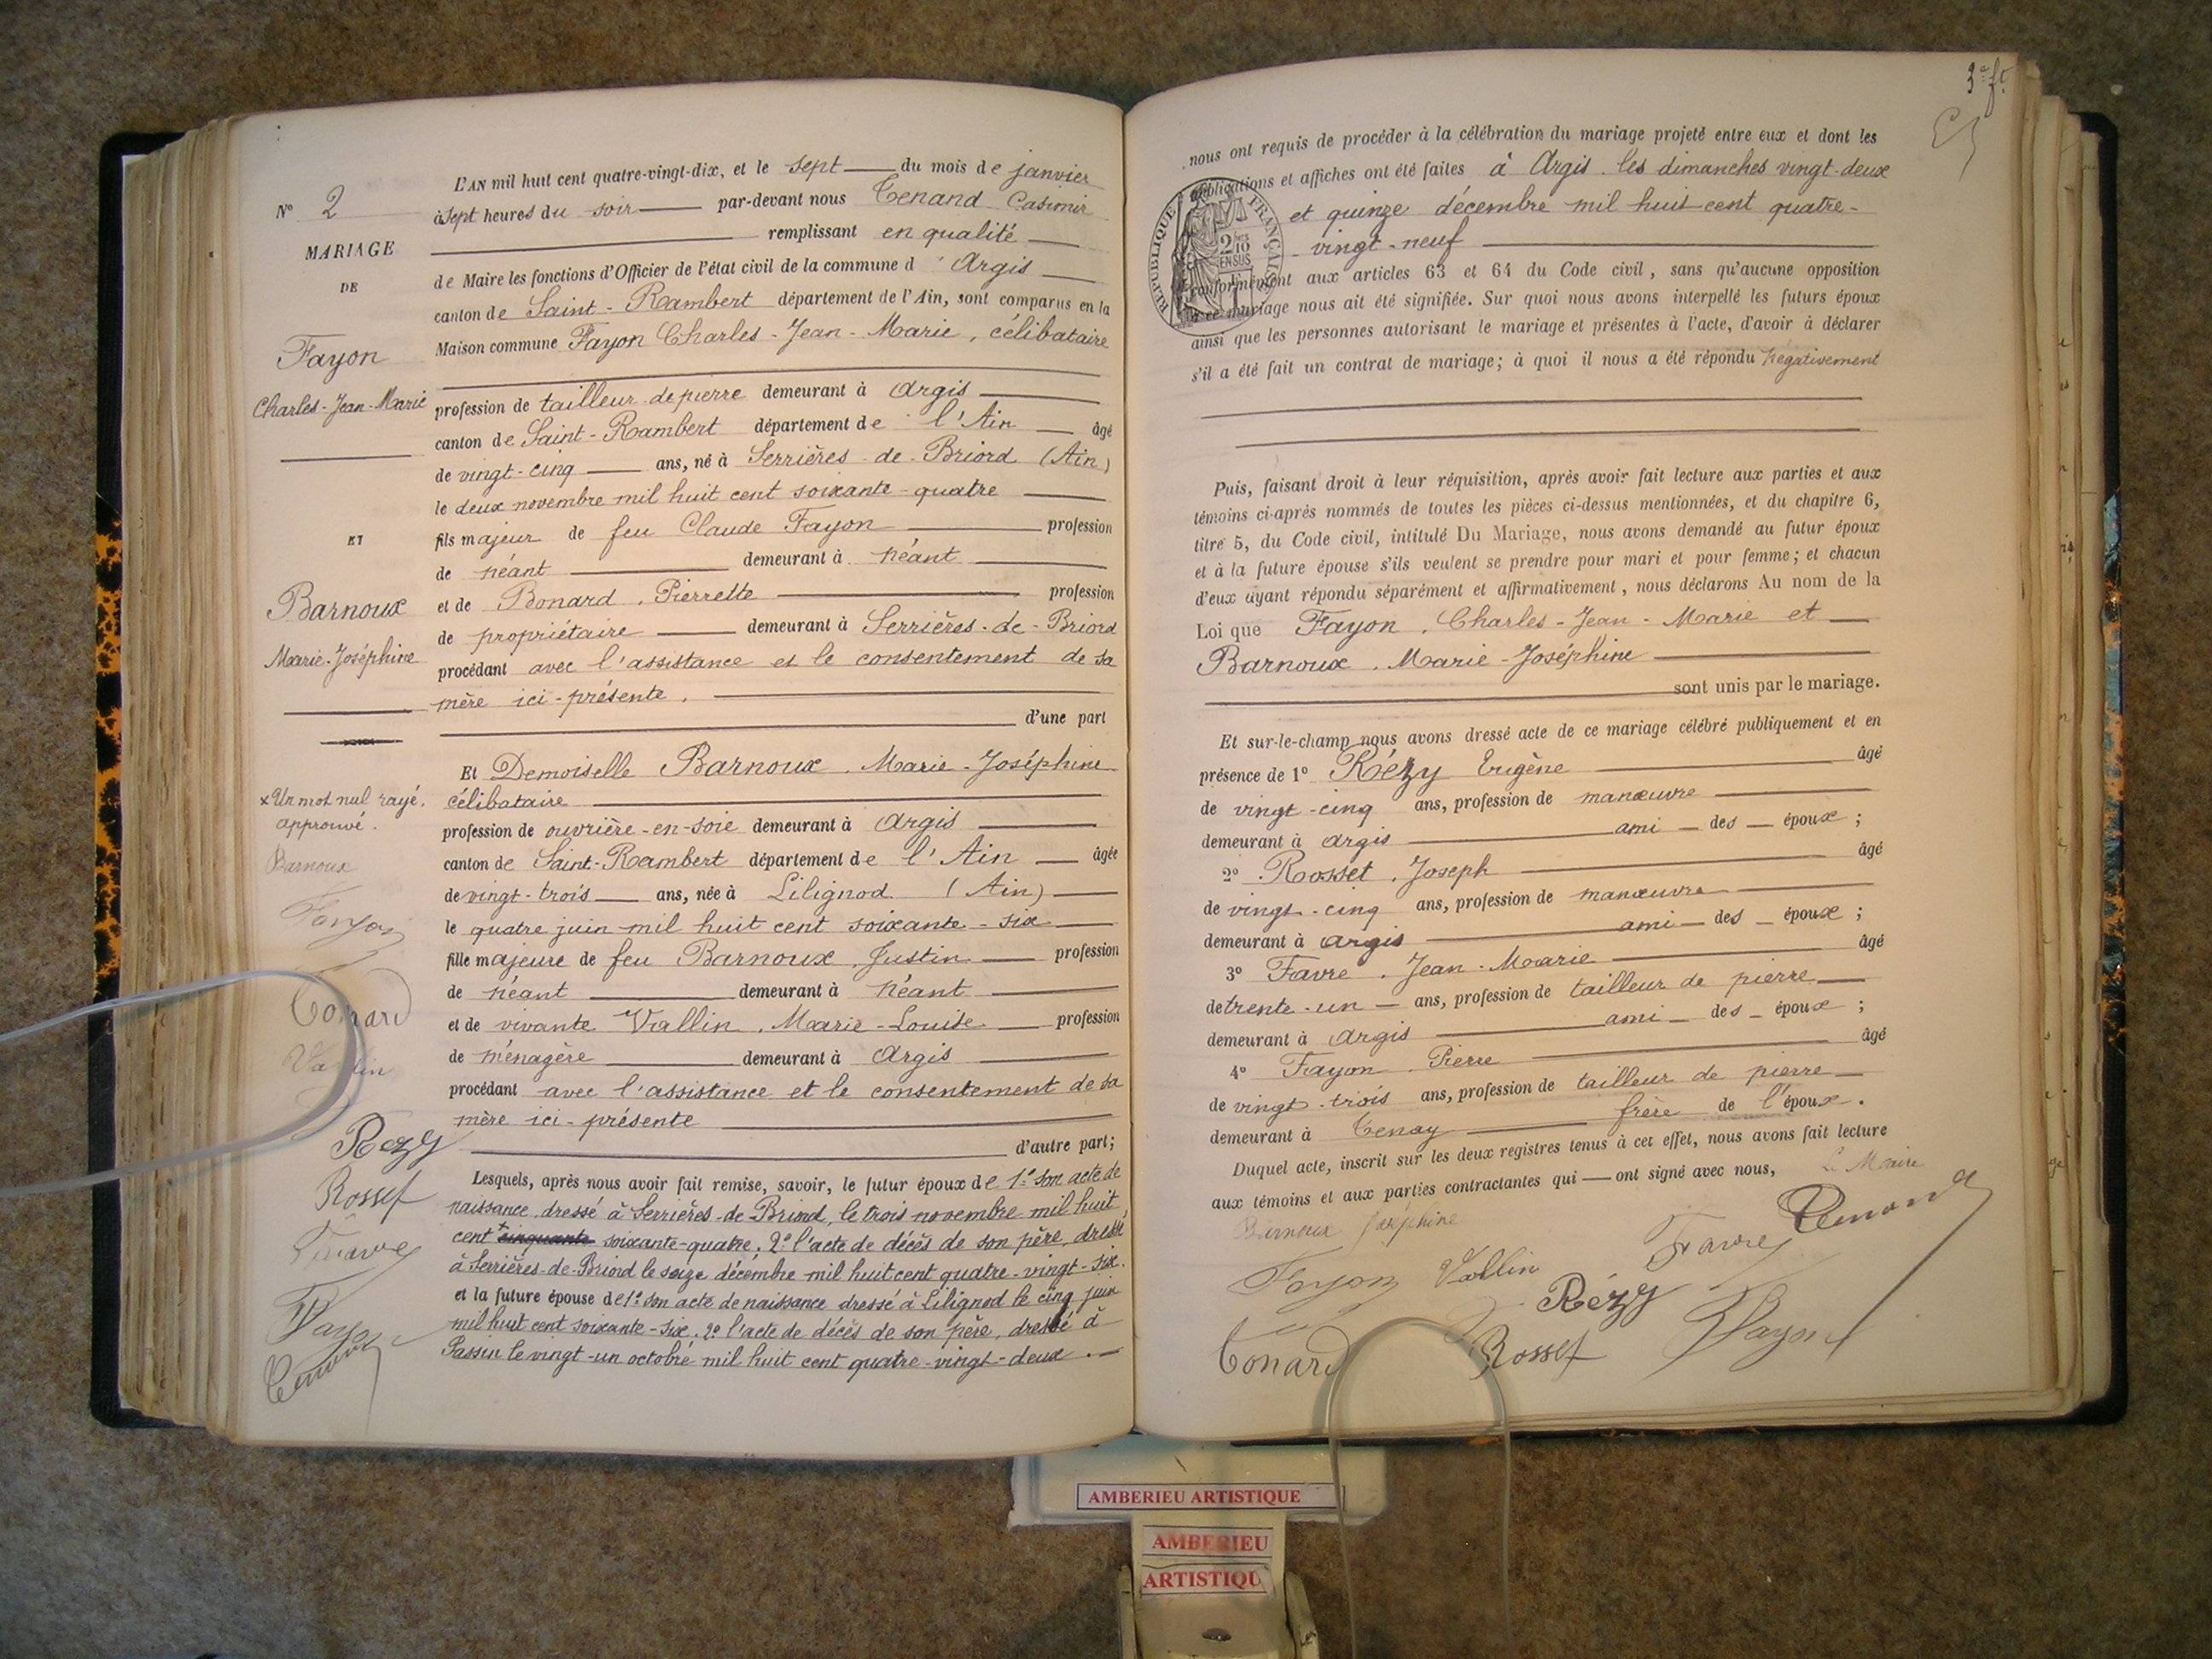 N° 2
MARIAGE
DE
Fayon
Charles-Jean-Marie
ET
Barnoux
Marie-Joséphine
x Un mot nul rayé.
approuvé.
Barnoux
Fayon
Bonard
Vallin
Rezy
Rosset
Favre
Fayon
L'AN mil huit cent quatre-vingt-dix, et le sept du mois de janvier
à sept heures du soir par-devant nous Tenand Casimir
remplissant en qualité
de Maire les fonctions d'Officier de l'état civil de la commune d'Argis
canton de Saint-Rambert département de l'Ain, sont comparus en la
Maison commune Fayon Charles-Jean-Marie, célibataire
profession de tailleur de pierre demeurant à Argis
canton de Saint-Rambert département de l'Ain âgé
de vingt-cinq ans, né à Serrières-de-Briord (Ain)
le deux novembre mil huit cent soixante-quatre
fils majeur de feu Claude Fayon profession
de néant demeurant à néant
et de Bonard, Pierrette profession
de propriétaire demeurant à Serrières-de-Briord
procédant avec l'assistance et le consentement de sa
mère ici-présente.
d'une part
Et Demoiselle Barnoux, Marie-Joséphine
célibataire
profession de ouvrière-en-soie demeurant à Argis
canton de Saint-Rambert département de l'Ain âgée
de vingt-trois ans, née à Lilignod (Ain)
le quatre juin mil huit cent soixante-six
fille majeure de feu Barnoux, Justin profession
de néant demeurant à néant
et de vivante Vallin, Marie-Louise profession
de ménagère demeurant à Argis
procédant avec l'assistance et le consentement de sa
mère ici-présente
d'autre part;
Lesquels, après nous avoir fait remise, savoir, le futur époux de 1° son acte de
naissance dressé à Serrières-de-Briord, le trois novembre mil huit
cent + cinquante soixante-quatre, 2° l'acte de décès de son père, dressé
à Serrières-de-Briord le seize décembre mil huit cent quatre-vingt-six.
et la future épouse de 1° son acte de naissance dressé à Lilignod le cinq juin
mil huit cent soixante-six, 2° l'acte de décès de son père, dressé à
Passin le vingt-un octobre mil huit cent quatre-vingt-deux.
3e ft
nous ont requis de procéder à la célébration du mariage projeté entre eux et dont les
publications et affiches ont été faites à Argis les dimanches vingt-deux
et quinze décembre mil huit cent quatre-
vingt-neuf
conformément aux articles 63 et 64 du Code civil, sans qu'aucune opposition
à ce mariage nous ait été signifiée. Sur quoi nous avons interpellé les futurs époux
ainsi que les personnes autorisant le mariage et présentes à l'acte, d'avoir à déclarer
s'il a été fait un contrat de mariage; à quoi il nous a été répondu négativement
REPUBLIQUE FRANÇAISE
2/10 EN SUS
Puis, faisant droit à leur réquisition, après avoir fait lecture aux parties et aux
témoins ci-après nommés de toutes les pièces ci-dessus mentionnées, et du chapitre 6,
titre 5, du Code civil, intitulé Du Mariage, nous avons demandé au futur époux
et à la future épouse s'ils veulent se prendre pour mari et pour femme; et chacun
d'eux ayant répondu séparément et affirmativement, nous déclarons Au nom de la
Loi que Fayon, Charles-Jean-Marie et
Barnoux, Marie-Joséphine
sont unis par le mariage.
Et sur-le-champ nous avons dressé acte de ce mariage célébré publiquement et en
présence de 1° Rézy Eugène âgé
de vingt-cinq ans, profession de manœuvre
demeurant à Argis ami des époux;
2° Rosset, Joseph âgé
de vingt-cinq ans, profession de manœuvre
demeurant à Argis ami des époux;
3° Favre, Jean-Marie âgé
de trente-un ans, profession de tailleur de pierre
demeurant à Argis ami des époux;
4° Fayon Pierre âgé
de vingt-trois ans, profession de tailleur de pierre
demeurant à Tenay frère de l'époux.
Duquel acte, inscrit sur les deux registres tenus à cet effet, nous avons fait lecture
aux témoins et aux parties contractantes qui ont signé avec nous, Le Maire
Barnoux Joséphine
Favre
Tenand
Fayon
Vallin
Rézy
Fayon
Bonard
Rosset
AMBERIEU ARTISTIQUE
AMBERIEU
ARTISTIQU